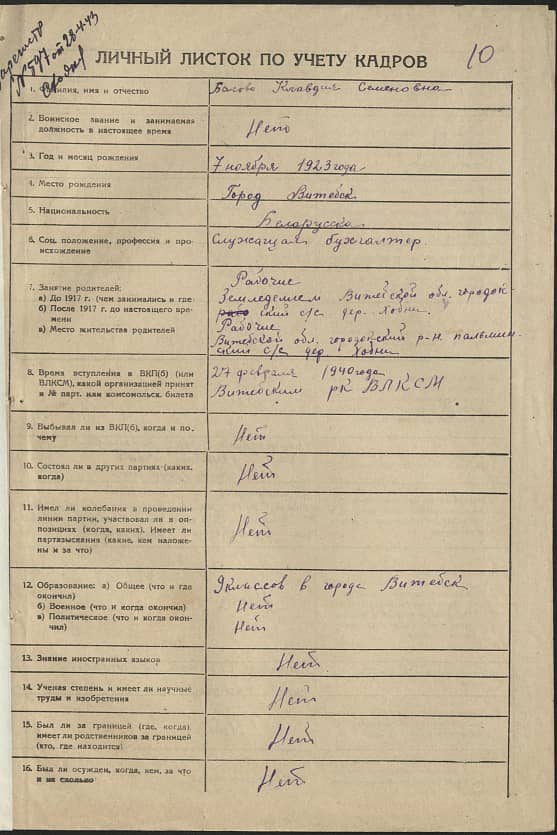 № 597 от 28.4.43
10
ЛИЧНЫЙ ЛИСТОК ПО УЧЕТУ КАДРОВ
1. Фамилия, имя и отчество
Клавдия Семеновна
2. Воинское звание и занимаемая
должность в настоящее время
Нет
3. Год и месяц рождения
7 ноября 1923 года
4. Место рождения
Город Витебск
5. Национальность
Беларусска
6. Соц. положение, профессия и про-
исхождение
Служащая бухгалтер.
7. Занятие родителей:
а) До 1917 г. (чем занимались и где
б) После 1917 г. до настоящего вре-
мени
в) Место жительства родителей
Рабочие
Земледелием Витебской обл. городок-
ский с/с дер. Ховни.
Рабочие
Витебской обл. городокский р-н пальмин-
ский с/с дер Ховни
8. Время вступления в ВКП(б) (или
ВЛКСМ), какой организацией принят
и № парт. или комсомольск. билета
27 февраля 1940 года
Витебским рк ВЛКСМ
9. Выбывал ли из ВКП(б), когда и по-
чему
Нет
10. Состоял ли в других партиях (каких,
когда)
Нет
11. Имел ли колебания в проведении
линии партии, участвовал ли в оп-
позициях (когда, каких). Имеет ли
партвзыскания (какие, кем наложе-
ны и за что)
Нет
12. Образование: а) Общее (что и где
окончил)
б) Военное (что и когда окончил)
в) Политическое (что и когда окон-
чил)
9 классов в города Витебск
Нет
Нет
13. Знание иностранных языков
Нет
14. Ученая степень и имеет ли научные
труды и изобретения
Нет
15. Был ли за границей (где, когда),
имеет ли родственников за границей
(кто, где находится)
Нет
16. Был ли осужден, когда, кем, за что
и на сколько
Нет